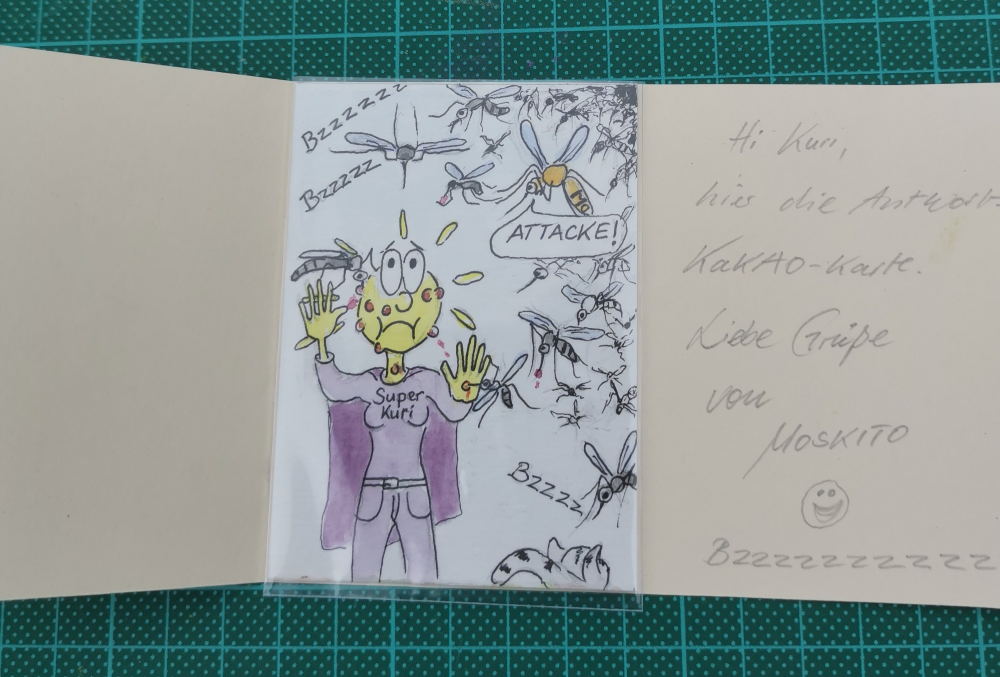 Bzzzzzz
Bzzzzz
Mo
ATTACKE!
Super
Kuri
Bzzzz
Hi Kuri,
hier die Antwort-
KAKAO-Karte.
Liebe Grüße
von
MOSKITO
Bzzzzzzzzzzz